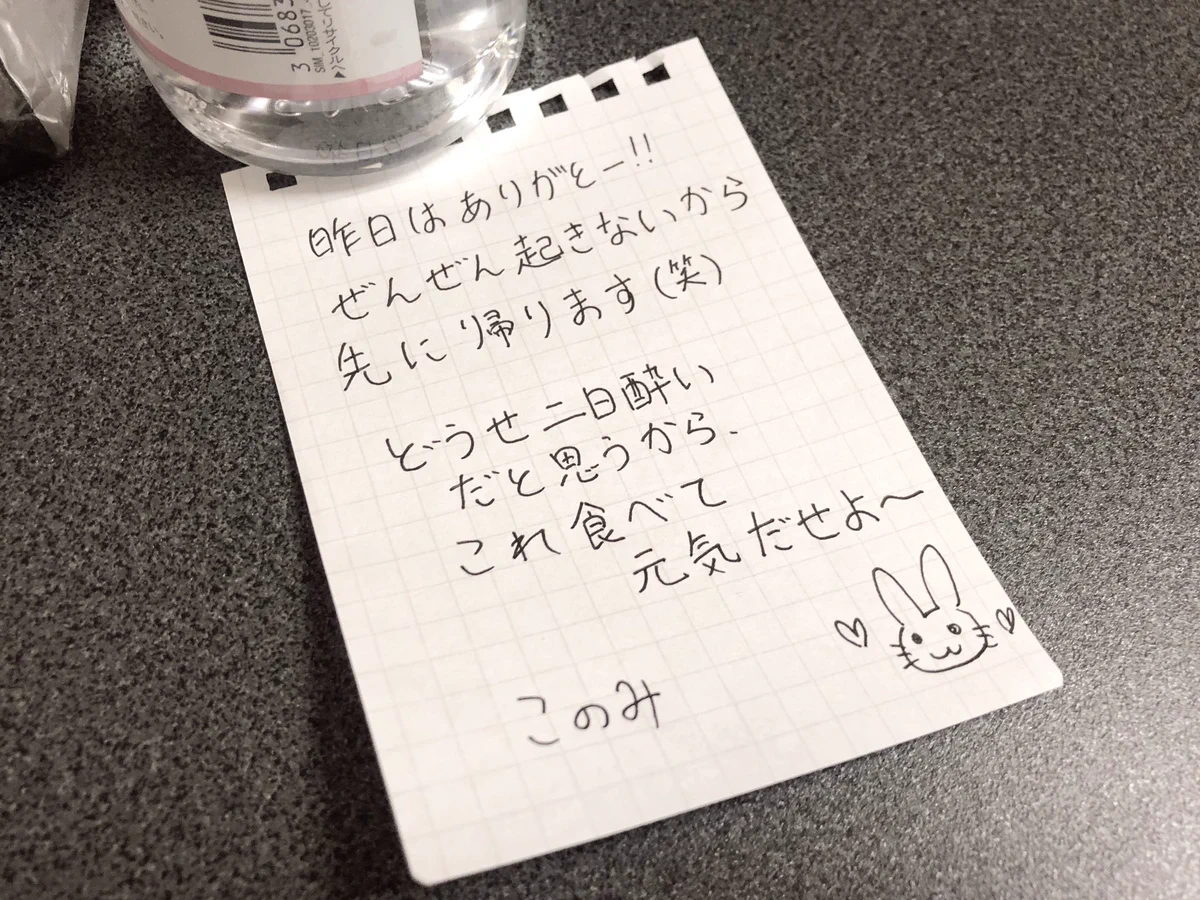 3 0683
SIM_10203017
昨日はありがとー!!
ぜんぜん起きないから
先に帰ります(笑)
どうせ二日酔い
だと思うから、
これ食べて
元気だせよ〜
このみ